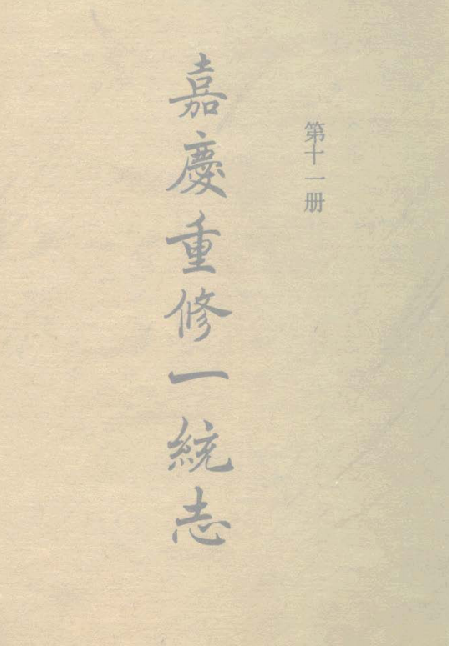 第十一册
嘉慶重修一統志